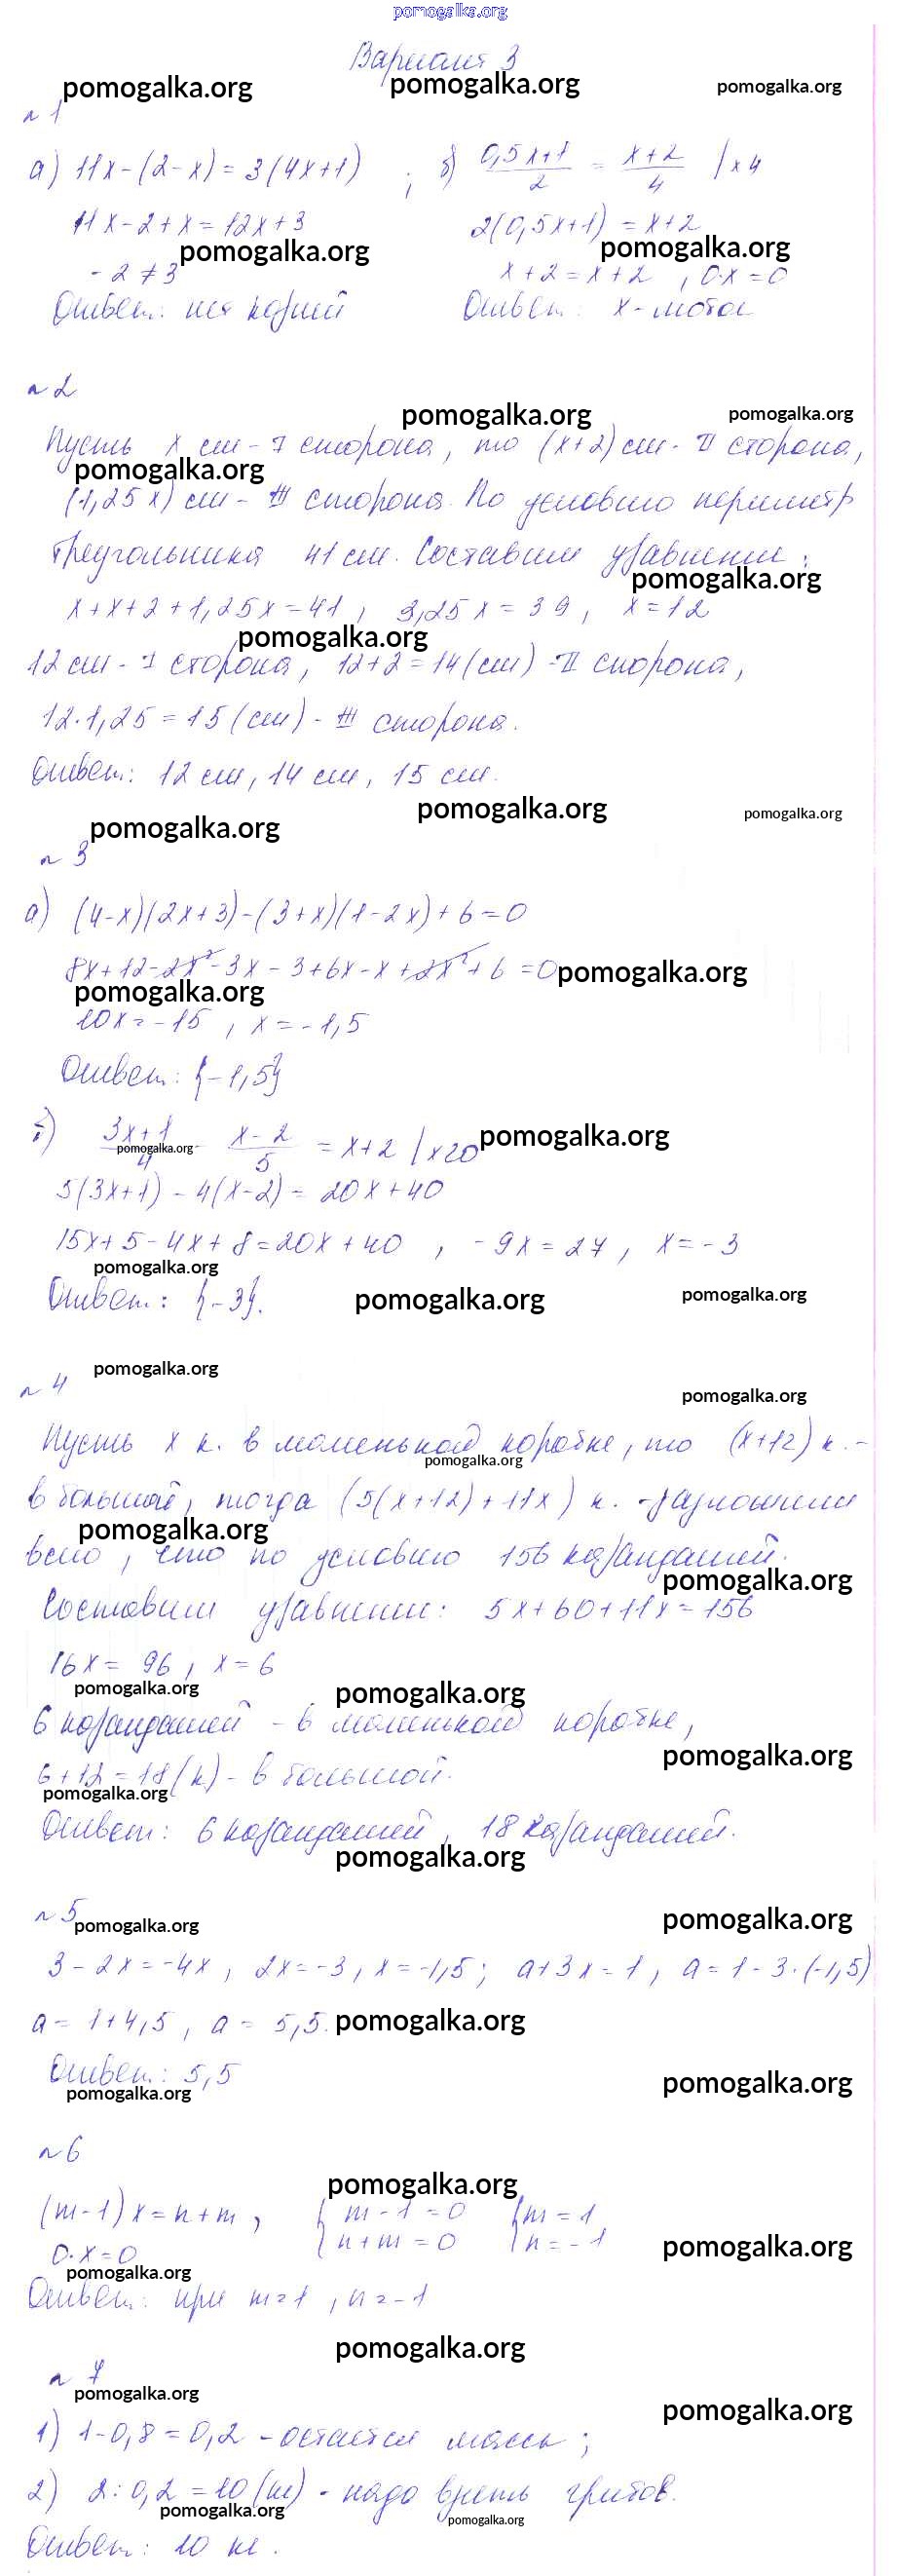 pomogalka.org
Вариант 3
pomogalka.org pomogalka.org pomogalka.org
n 1
а) 11x-(2-x)=3(4x+1) ; б) (0,5x+1)/2 = (x+2)/4 |×4
11x-2+x=12x+3 2(0,5x+1)=x+2
pomogalka.org pomogalka.org
-2≠3 x+2=x+2, 0·x=0
Ответ: нет корней Ответ: x-любое
n 2
pomogalka.org pomogalka.org
Пусть x см - I сторона, то (x+2) см - II сторона,
pomogalka.org
(1,25x) см - III сторона. По условию периметр
треугольника 41 см. Составим уравнение:
pomogalka.org
x+x+2+1,25x=41, 3,25x=39, x=12
pomogalka.org
12 см - I сторона, 12+2=14(см) - II сторона,
12·1,25=15(см) - III сторона.
Ответ: 12 см, 14 см, 15 см.
pomogalka.org pomogalka.org pomogalka.org
n 3
а) (4-x)(2x+3)-(3+x)(1-2x)+6=0
8x+12-2x²-3x-3+6x-x+2x²+6=0
pomogalka.org
pomogalka.org
10x=-15, x=-1,5
Ответ: {-1,5}
б) (3x+1)/4 - (x-2)/5 = x+2 |×20
pomogalka.org pomogalka.org
5(3x+1)-4(x-2)=20x+40
15x+5-4x+8=20x+40, -9x=27, x=-3
pomogalka.org
Ответ: {-3}.
pomogalka.org pomogalka.org
pomogalka.org
n 4
pomogalka.org
Пусть x к. в маленькой коробке, то (x+12) к. -
pomogalka.org
в большой, тогда (5(x+12)+11x) к. -
pomogalka.org
что по условию 156 карандашей.
pomogalka.org
Составим уравнение: 5x+60+11x=156
16x=96, x=6
pomogalka.org pomogalka.org
6 карандашей - в маленькой коробке,
pomogalka.org
6+12=18(к) - в большой.
pomogalka.org
Ответ: 6 карандашей, 18 карандашей.
pomogalka.org
n 5
pomogalka.org pomogalka.org
3-2x=-4x, 2x=-3, x=-1,5; a+3x=1, a=1-3·(-1,5)
a=1+4,5, a=5,5.
pomogalka.org
Ответ: 5,5
pomogalka.org pomogalka.org
n 6
pomogalka.org
(m-1)x=n+m, { m-1=0 { m=1
0·x=0 n+m=0 n=-1
pomogalka.org pomogalka.org
Ответ: при m=1, n=-1
pomogalka.org
n 7
pomogalka.org pomogalka.org
1) 1-0,8=0,2 - остаётся массы;
2) 2:0,2=10(кг) - надо взять грибов.
pomogalka.org pomogalka.org
Ответ: 10 кг.